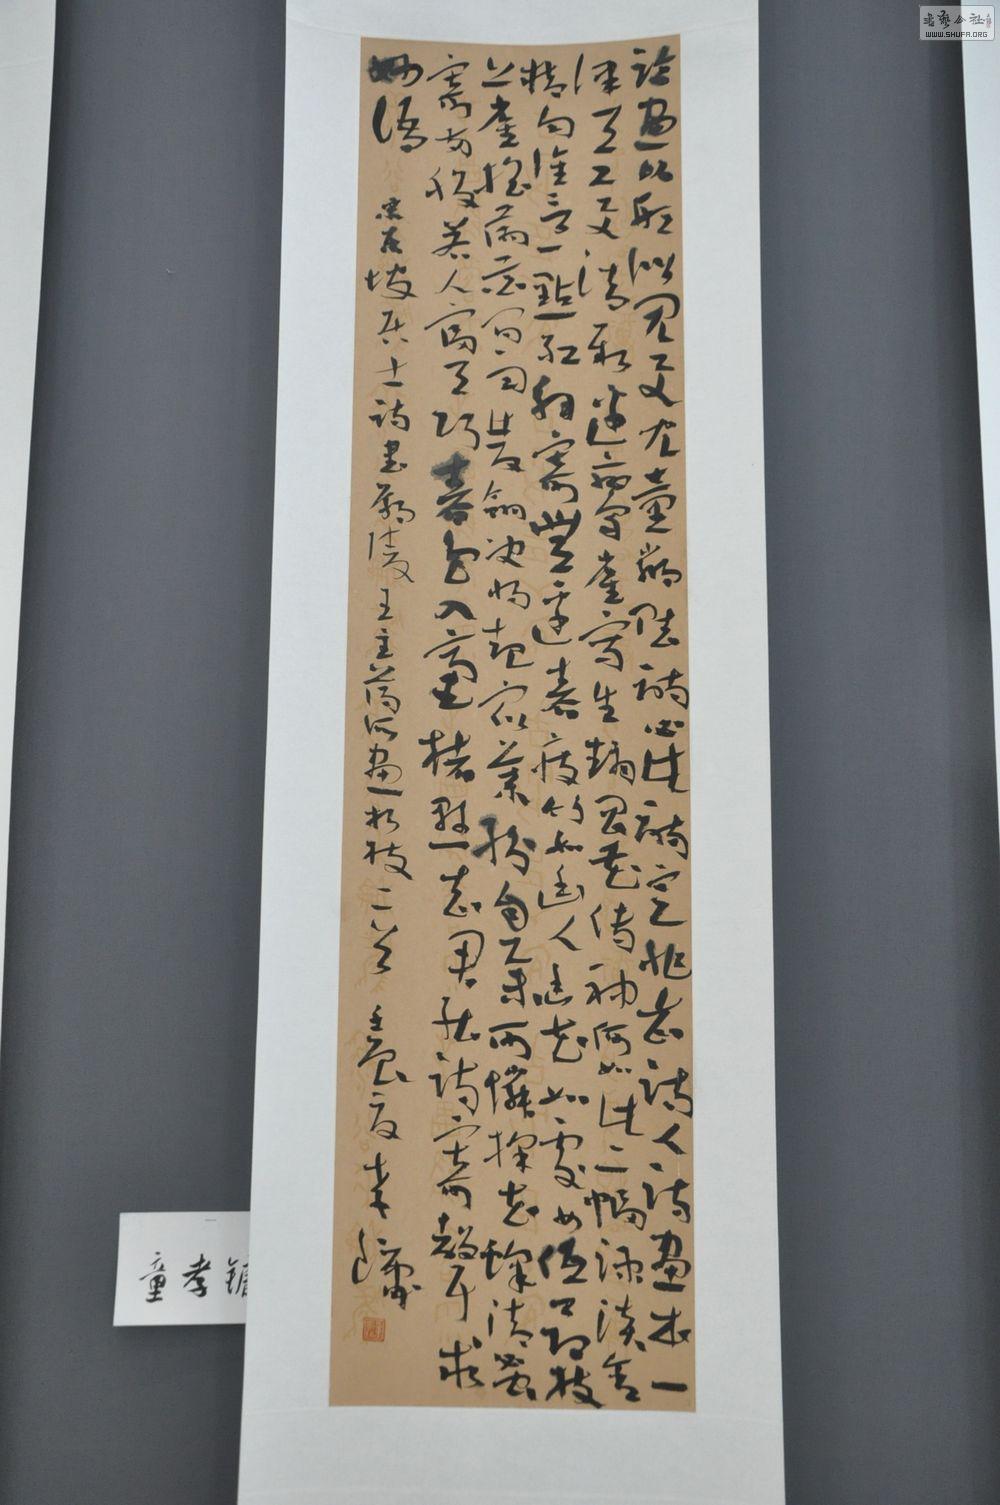 論畫以形似見与兒童鄰賦詩必此詩定非知詩人詩畫本一
律天工与清新邊鸞雀寫生趙昌花傳神何如此二幅疎淡含
精勻誰言一點紅解寄無邊春瘦竹如幽人幽花如處女低昂枝
上雀搖蕩花間雨雙翎決將起衆葉紛自舉可憐採花蜂清蜜
寄兩股若人富天巧春色入毫楮懸知君能詩寄聲求
妙語 宋東坡居士詩書鄢陵王主簿所畫折枝二首 壬辰夏 孝鏞
童孝
书艺公社
WWW.SHUFA.ORG